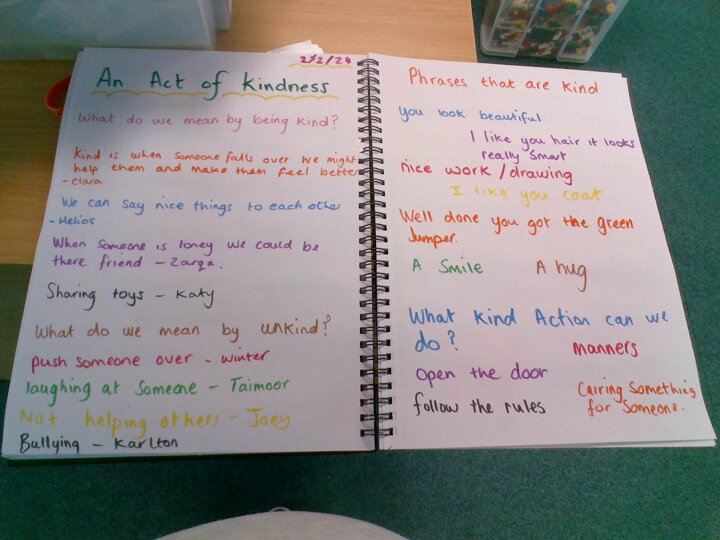 2/2/24
An Act of Kindness
What do we mean by being kind?
Kind is when someone falls over we might
help them and make them feel better
- Clara
We can say nice things to each other
- Helios
When someone is loney we could be
there friend - Zarqa.
Sharing toys - Katy
What do we mean by unkind?
push someone over - winter
laughing at Someone - Taimoor
Not helping others - Joey
Bullying - Karlton
Phrases that are kind
you look beautiful
I like you hair it looks
really smart
nice work/drawing
I like you coat
Well done you got the green
Jumper.
A Smile A hug
What Kind Action can we
do?
manners
open the door
Cairing Something
for Someone.
follow the rules